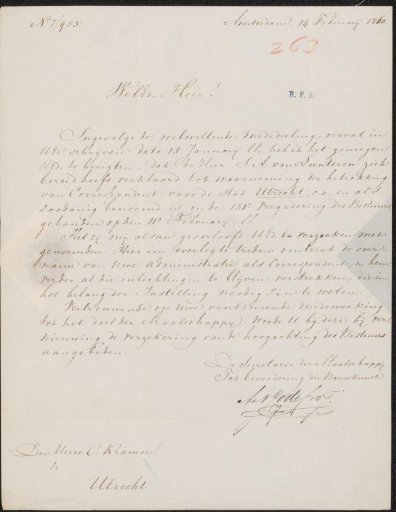 No 7/955.
Amsterdam, 14 Februarij 1860.
263
R. P. K.
WelEd. Heer!
Ingevolge de welwillende mededeeling, vervat in
UEds schrijven dato 25 January ll. heb ik het genoegen
UEd. te berigten, dat de Heer S. A. van Lunteren zich
bereid heeft verklaard tot waarneming der betrekking
van Correspondent voor de Stad Utrecht, c.a. en als
zoodanig benoemd is, in de 131e Vergadering des Bestuurs
gehouden op den 11n February ll.
Het zij mij alsnu geoorloofd UEd. te verzoeken met
genoemden Heer in overleg te treden omtrent de over-
name van Uwe administratie als Correspondent, en hem
verder al die inlichtingen te blijven verstrekken, die in
het belang der Instelling noodig zyn te weten.
Vertrouwende op Uwe voortdurende medewerking
tot het doel der Maatschappij, wordt U by deze by ver-
nieuwing, de verzekering van de hoogachting des Bestuurs
aangeboden.
De Secretaris der Maatschappij
Tot bevordering der Bouwkunst.
Den Heere C. Kramm
te
Utrecht